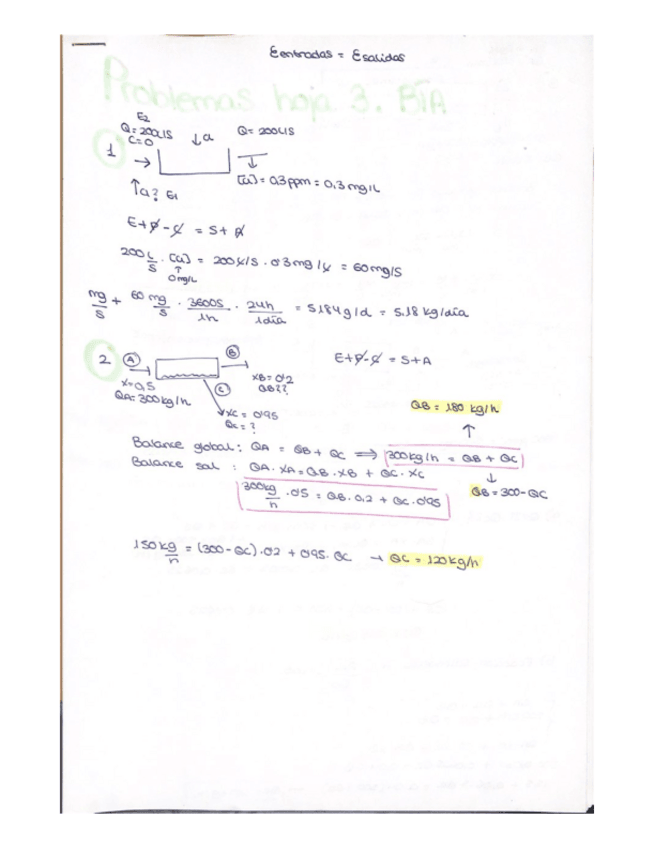 Eentradas = Esalidas
Problemas hoja 3. BTA
1
E2
Q= 200L/S
C=0
↓a
Q= 200L/S
→
[a] = 0,3 ppm = 0,3 mg/L
↑a? E1
E+g-c = S+A
200 L/S · [a] = 200 L/S · 0'3 mg/L = 60mg/S
↑
0mg/L
mg/S + 60 mg/S · 3600S/1h · 24h/1día = 5184g/d = 5,18 kg/día
2
A
B
C
E+g-c = S+A
X=0,5
QA=300kg/h
XB=0'2
QB??
XC = 0'95
QC = ?
QB = 180 kg/h
↑
Balance global: QA = QB + QC ⟹ 300kg/h = QB + QC
Balance sal : QA·XA=QB·XB + QC·XC
↓
300kg/h ·0'5 = QB·0,2 + QC·0'95
QB=300-QC
150kg/h = (300-QC)·0'2 + 0'95·QC → QC = 120kg/h